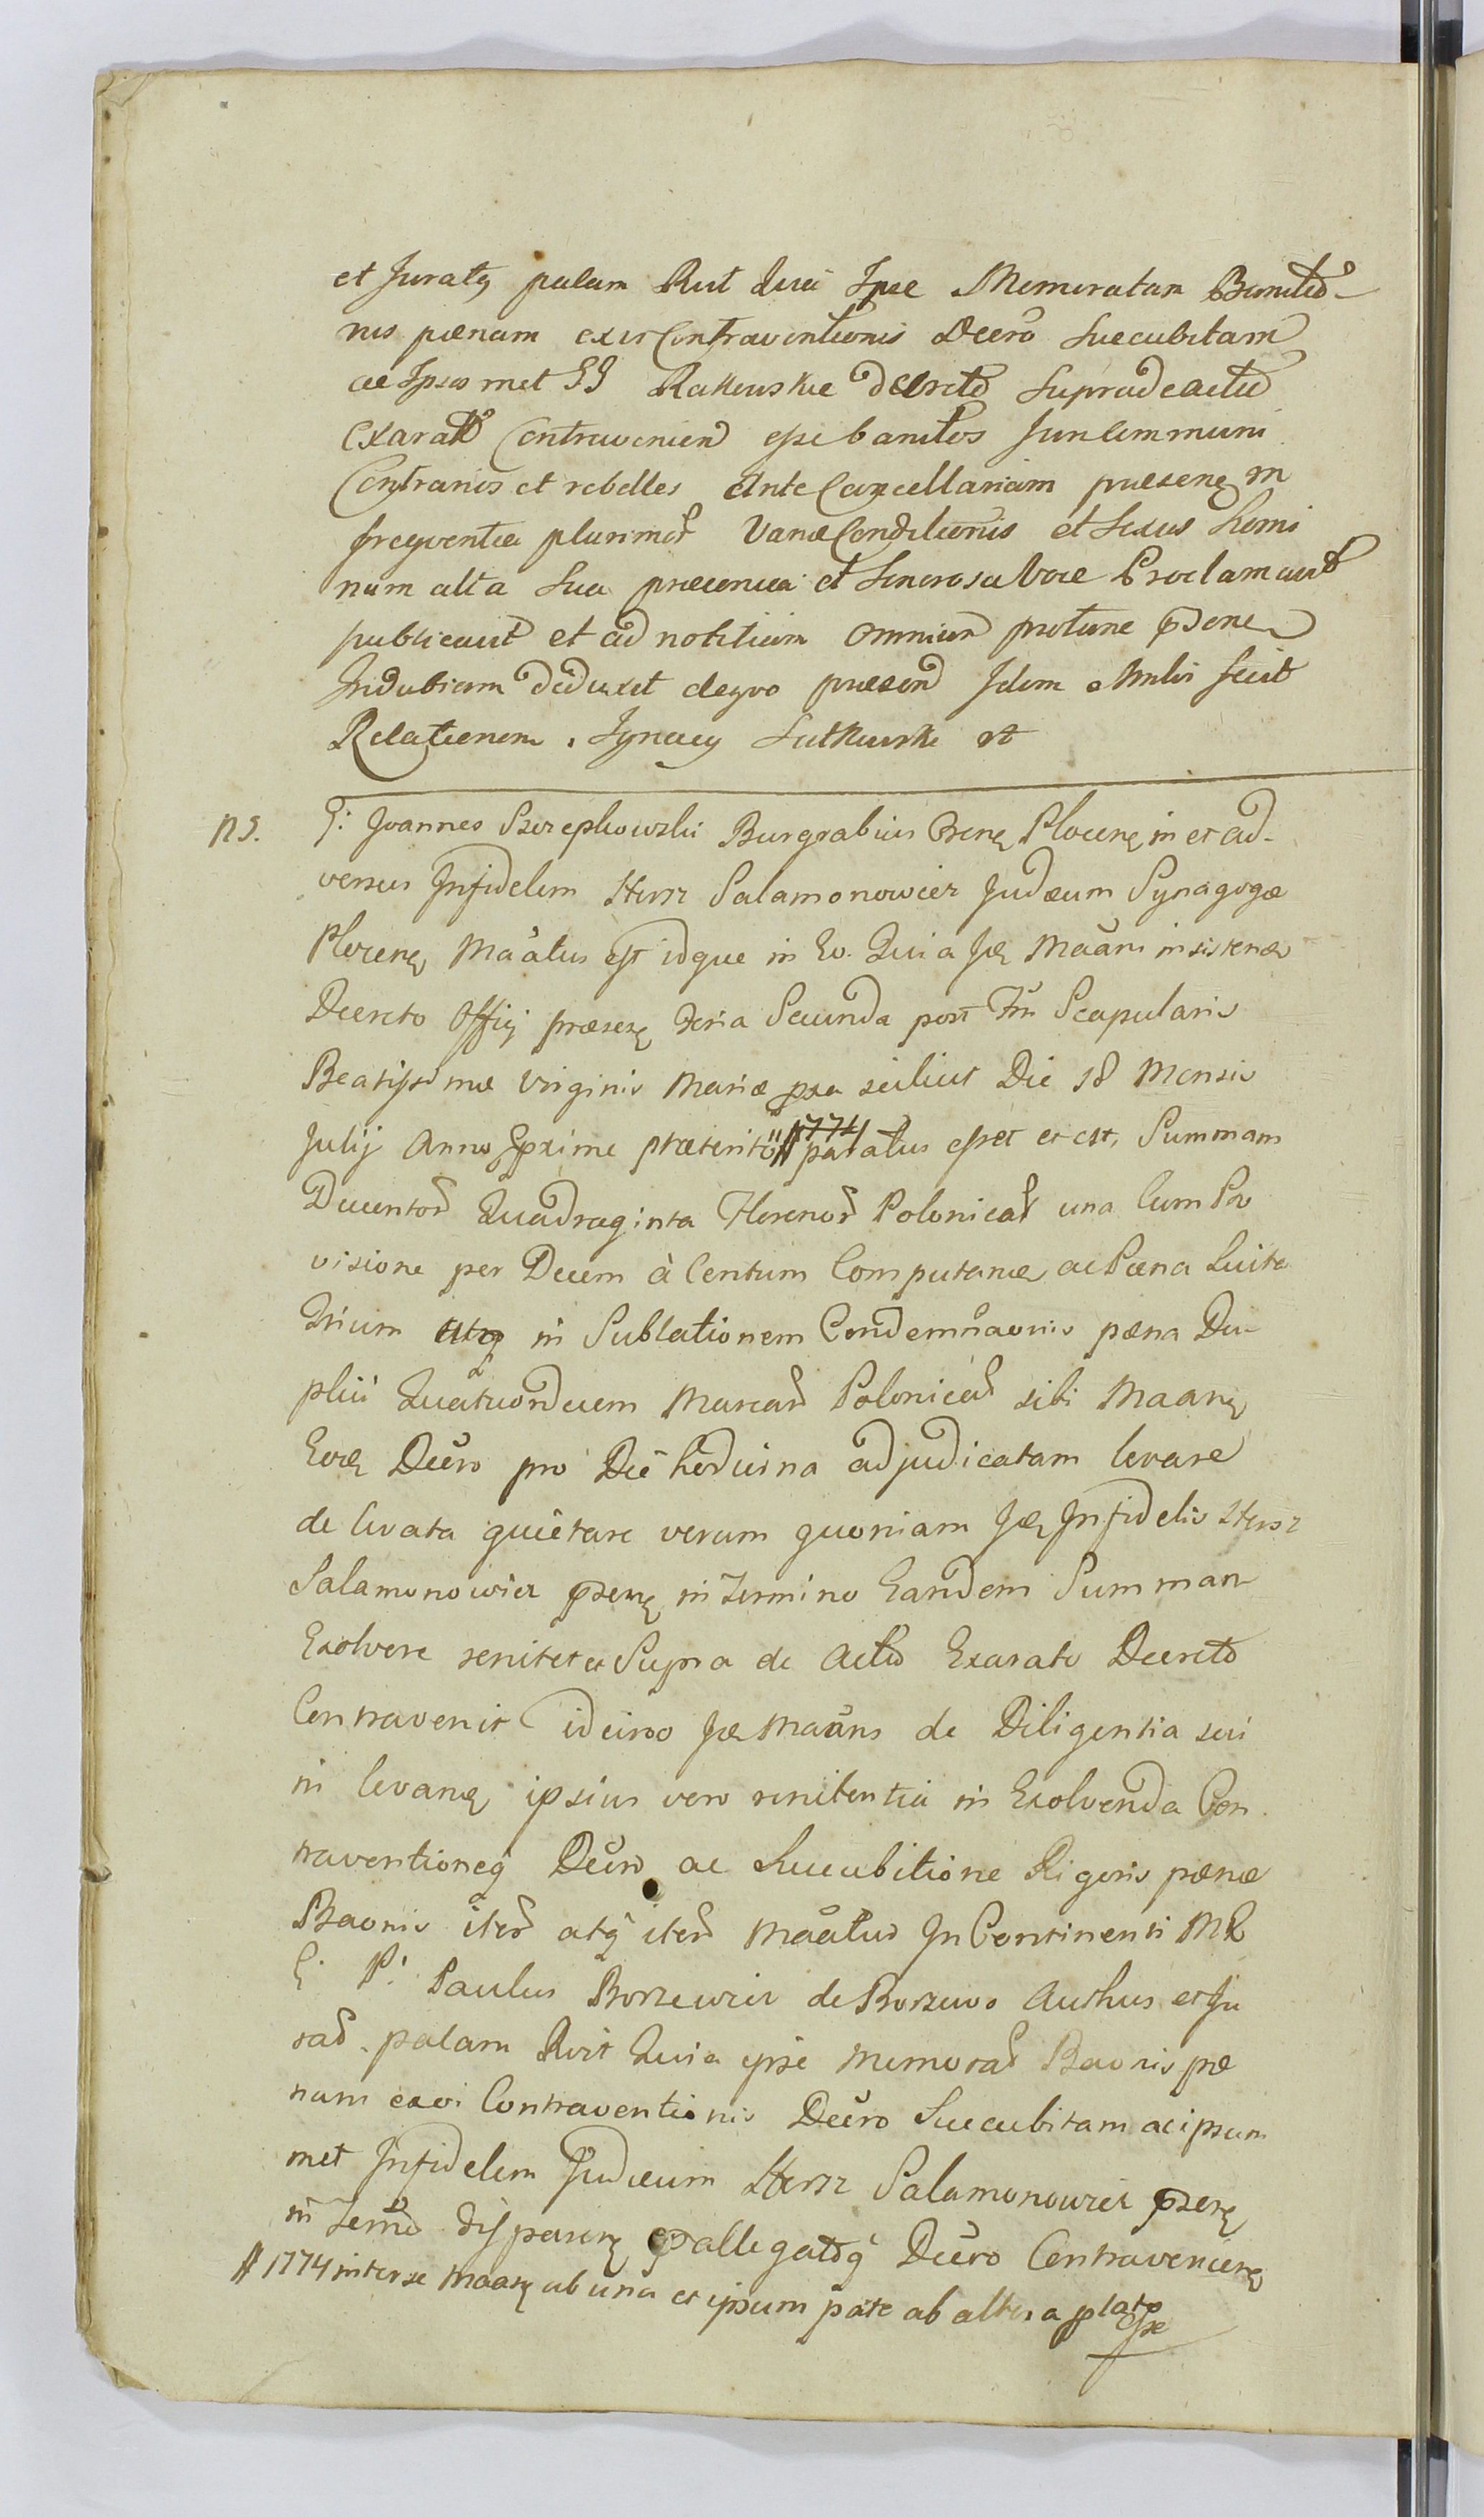 et Juratg palam Rut Quia Ipse Memoratam Banitio-
nis pœnam exis Contraventionis Decro Succubitam
ac Ipsos met GG Rakowskie decreto Supradeacto
Exarato Contravenien esse banitos Juri communi
Contrarios et rebelles Ante Cancellariam præsenę in
freqventia plurimor Variæ Conditionis et Sexus Homi
num alta Sua præconica et Sonorosa Voce Proclamavit
publicavit et ad notitiam omnium protunc
Indubiam deduxit deqvo præsen Idem Mnlis fecit
Relationem. Ignacy Sutkowski
ns. G: Joannes Szczepkowski Burgrabius Crenę Plocenę in et ad-
versus Infidelem Hersz Salamonowicz Judæum Synagogæ
Plocenę Maatus est idque in Eo. Quia Ipę Maans insistenę
Decreto Offij præsenę feria Secunda post Ftu Scapularis
Beatissimæ Virginis Mariæ pxa scilicet Die 18 Mensis
Julij Anno Eprime præterito ̶1̶7̶7̶4̶ paratus esset et est, Summam
Ducentor Quadraginta Florenor Polonical una Cum Pro
visione per Decem à Centum Computanę ac Pæna Luita
Trium in Sublationem Condemnaonis pæna Du-
plii Quatuordecem Marcar Polonical sibi Maanę
Eoę Decro pro Die hodierna adjudicatam levare
de levata quietare verum quoniam Ipę Infidelis Hersz
Salamonowicz pzenę in Termino Eandem Summam
Exolvere renitet et Supra de Acto Exarato Decreto
Contravenit idcirco Ipę Maans de Diligentia sui
in levanę ipsius vero renitentia in Exolvenda Con
traventioneq Decro ac Succubitione Rigoris pænæ
Baonis iter atq iter Maatus In Continenti
G. P: Paulus Borzewicz de Borzewo Authus et Ju
rat. palam Rvit Quia ipse memorat Baonis pæ
nam exvi Contraventionis Decro Succubitam ac ipsum
met Infidelem Judæum Hersz Salamonowicz pzenę
in Termo disparenę pallegatoq Decro Contravenienę
# 1774 inter se Maanę ab una et ipsum parte ab altera
esse